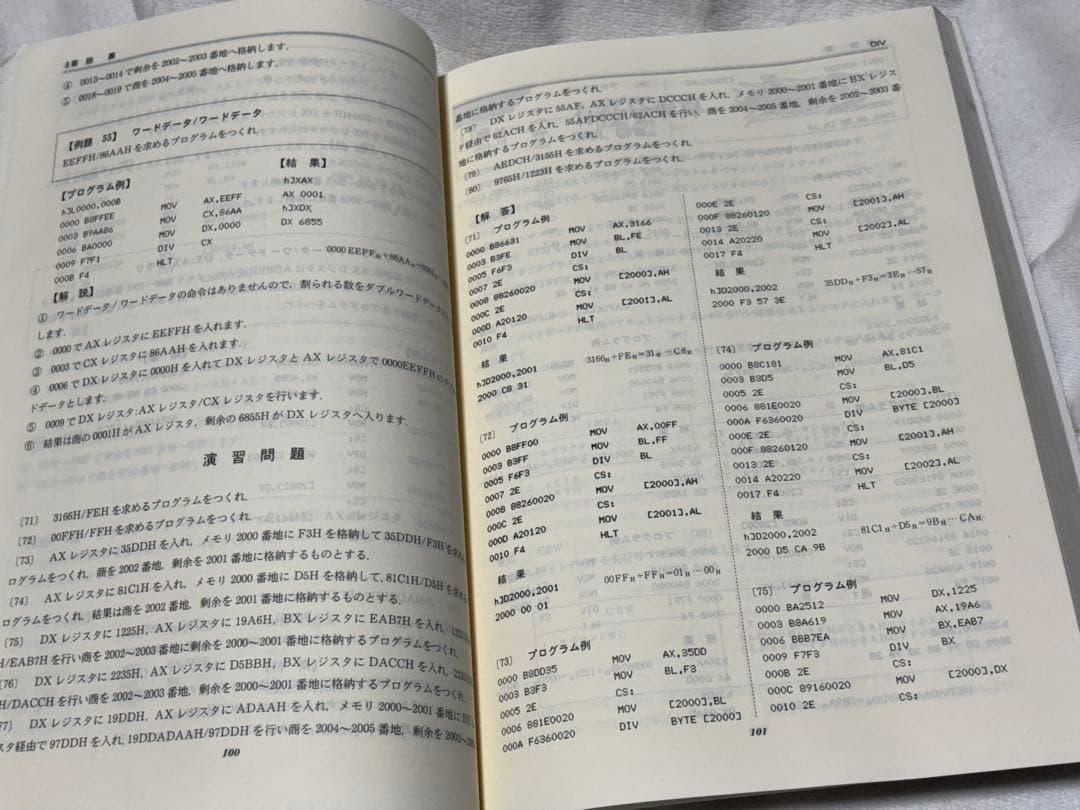 3章 除算
④ 0013~0014で剰余を2002~2003番地へ格納します.
⑤ 0018~0019で商を2004~2005番地へ格納します.
【例題 55】 ワードデータ/ワードデータ
EEFFH/86AAHを求めるプログラムをつくれ.
【プログラム例】 【結 果】
hJL0000,000B hJXAX
0000 B8FFEE MOV AX,EEFF AX 0001
0003 B9AA86 MOV CX,86AA hJXDX
0006 BA0000 MOV DX,0000 DX 6855
0009 F7F1 DIV CX
000B F4 HLT
0000EEFFH÷86AAH=
【解 説】
① ワードデータ/ワードデータの命令はありませんので, 割られる数をダブルワードデータに
します.
② 0000でAXレジスタにEEFFHを入れます.
③ 0003でCXレジスタに86AAHを入れます.
④ 0006でDXレジスタに0000Hを入れてDXレジスタとAXレジスタで0000EEFFHのダブル
ドデータとします.
⑤ 0009でDXレジスタ:AXレジスタ/CXレジスタを行います.
⑥ 結果は商の0001HがAXレジスタ, 剰余の6855HがDXレジスタへ入ります.
演習問題
〔71〕 3166H/FEHを求めるプログラムをつくれ.
〔72〕 00FFH/FFHを求めるプログラムをつくれ.
〔73〕 AXレジスタに35DDHを入れ, メモリ2000番地にF3Hを格納して35DDH/F3Hを求める
ログラムをつくれ. 商を2002番地, 剰余を2001番地に格納するものとする.
〔74〕 AXレジスタに81C1Hを入れ, メモリ2000番地にD5Hを格納して, 81C1H/D5Hを求める
ログラムをつくれ. 結果は商を2002番地, 剰余を2001番地に格納するものとする.
〔75〕 DXレジスタに1225H, AXレジスタに19A6H, BXレジスタにEAB7Hを入れ,
H/EAB7Hを行い商を2002~2003番地に剰余を2000~2001番地に格納するプログラムをつくれ.
〔76〕 DXレジスタに2235H, AXレジスタにD5BBH, BXレジスタにDACCHを入れ,
H/DACCHを行い商を2002~2003番地, 剰余を2000~2001番地に格納するプログラムをつくれ.
77〕 DXレジスタに19DDH, AXレジスタにADAAHを入れ, メモリ2000~2001番地にBX
スタ経由で97DDHを入れ, 19DDADAAH/97DDHを行い商を2004~2005番地, 剰余を2002~
100
DIV
番地に格納するプログラムをつくれ.
〔78〕 DXレジスタに55AF, AXレジスタにDCCCHを入れ, メモリ2000~2001番地にBXレジス
タ経由で62ACHを入れ, 55AFDCCCH/62ACHを行い, 商を2004~2005番地, 剰余を2002~2003番
地に格納するプログラムをつくれ.
〔79〕 AEDCH/3155Hを求めるプログラムをつくれ.
〔80〕 9765H/1223Hを求めるプログラムをつくれ.
【解 答】
〔71〕 プログラム例
0000 B86631 MOV AX,3166
0003 B3FE MOV BL,FE
0005 F6F3 DIV BL
0007 2E CS:
0008 88260020 MOV [2000],AH
000C 2E CS:
000D A20120 MOV [2001],AL
0010 F4 HLT
結果
hJD2000,2001 3166H÷FEH=31H…C8H
2000 C8 31
〔72〕 プログラム例
0000 B8FF00 MOV AX,00FF
0003 B3FF MOV BL,FF
0005 F6F3 DIV BL
0007 2E CS:
0008 88260020 MOV [2000],AH
000C 2E CS:
000D A20120 MOV [2001],AL
0010 F4 HLT
結果
hJD2000,2001 00FFH÷FFH=01H…00H
2000 00 01
〔73〕 プログラム例
0000 B8DD35 MOV AX,35DD
0003 B3F3 MOV BL,F3
0005 2E CS:
0006 881E0020 MOV [2000],BL
000A F6360020 DIV BYTE [2000]
000E 2E CS:
000F 88260120 MOV [2001],AH
0013 2E CS:
0014 A20220 MOV [2002],AL
0017 F4 HLT
結果
hJD2000,2002 35DDH÷F3H=3EH…57H
2000 F3 57 3E
〔74〕 プログラム例
0000 B8C181 MOV AX,81C1
0003 B3D5 MOV BL,D5
0005 2E CS:
0006 881E0020 MOV [2000],BL
000A F6360020 DIV BYTE [2000]
000E 2E CS:
000F 88260120 MOV [2001],AH
0013 2E CS:
0014 A20220 MOV [2002],AL
0017 F4 HLT
結果
hJD2000,2002 81C1H÷D5H=9BH…CAH
2000 D5 CA 9B
〔75〕 プログラム例
0000 BA2512 MOV DX,1225
0003 B8A619 MOV AX,19A6
0006 BBB7EA MOV BX,EAB7
0009 F7F3 DIV BX
000B 2E CS:
000C 89160020 MOV [2000],DX
0010 2E CS:
101